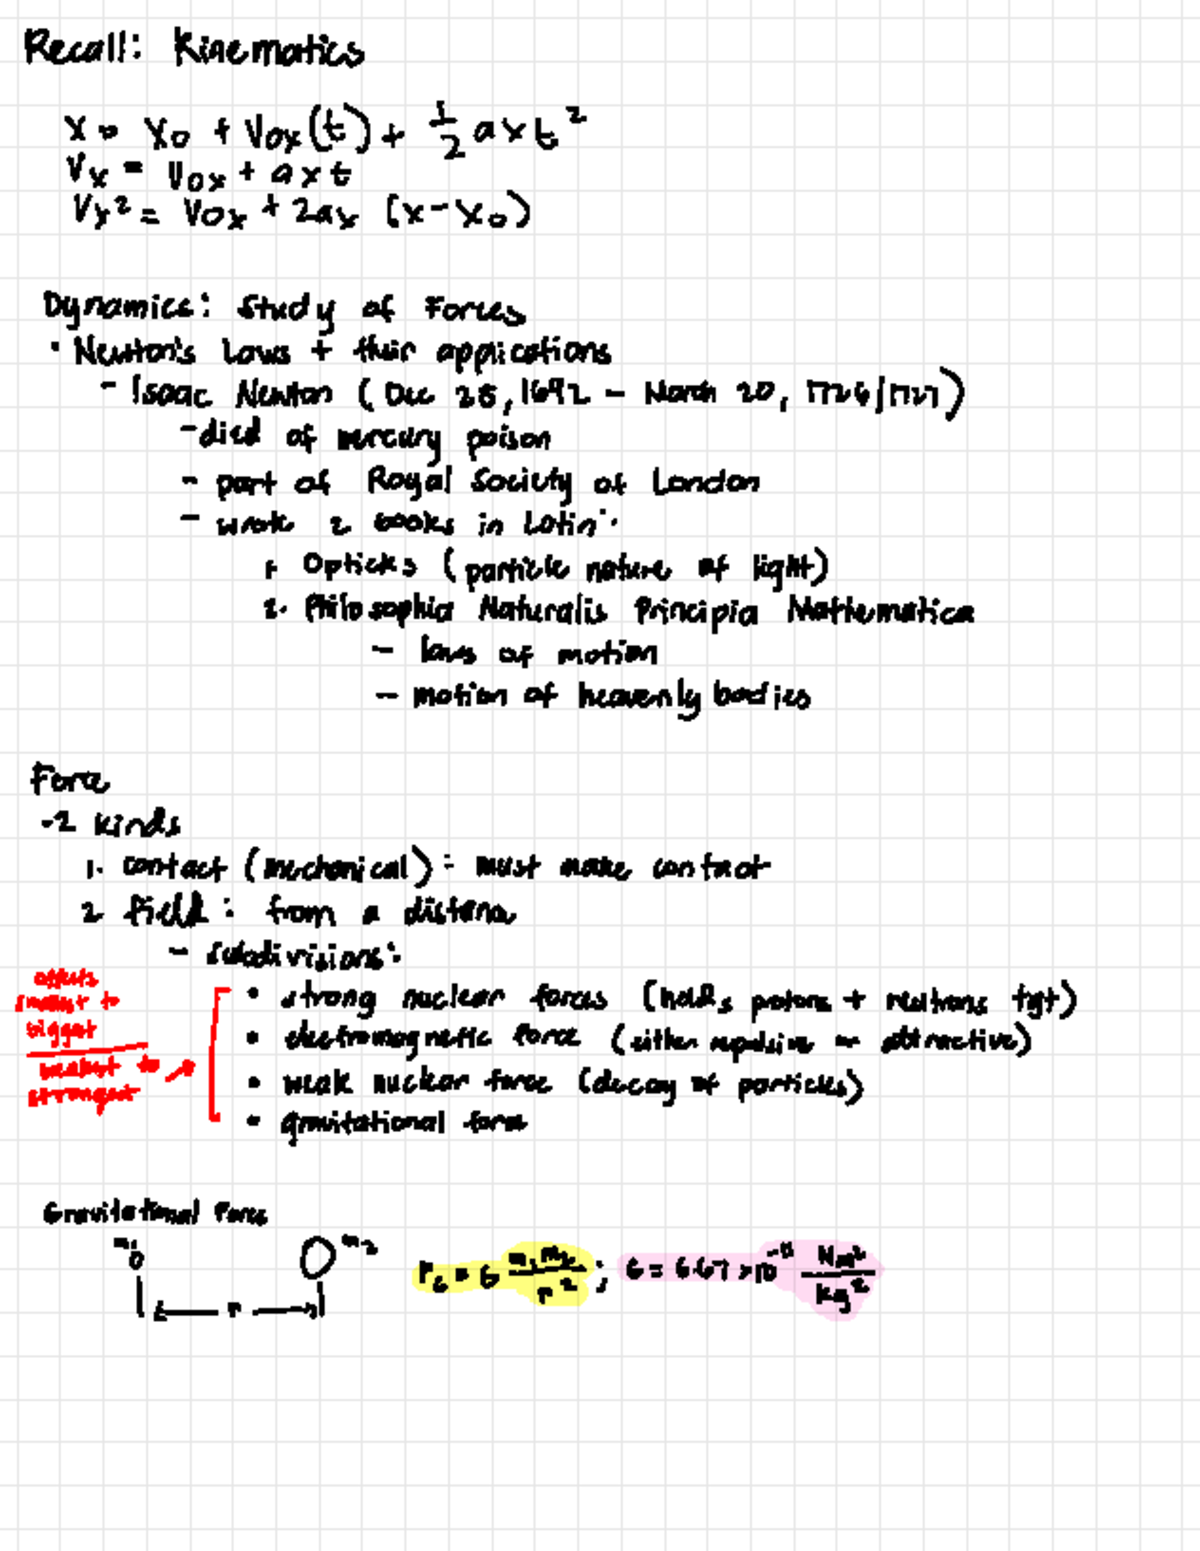 Recall: Kinematics
x = x₀ + V₀ₓ(t) + 1/2 axt²
Vx = V₀x + axt
Vx² = V₀x + 2ax (x-x₀)
Dynamics: Study of Forces
• Newton's Laws + their applications
- Isaac Newton (Dec 25, 1692 - March 20, 1726/1727)
- died of mercury poison
- part of Royal Society of London
- wrote 2 books in Latin:
1. Opticks (particle nature of light)
2. Philosophia Naturalis Principia Mathematica
- laws of motion
- motion of heavenly bodies
Force
-2 kinds
1. contact (mechanical): must make contact
2 field: from a distance
- subdivisions:
affects
smallest to
biggest
weakest to
strongest
• strong nuclear forces (holds protons + neutrons tgt)
• electromagnetic force (either repulsive or attractive)
• weak nuclear force (decay of particles)
• gravitational force
Gravitational Force
m₁ m₂
r
F_G = G m₁m₂/r² ; G = 6.67 × 10⁻¹¹ Nm²/kg²